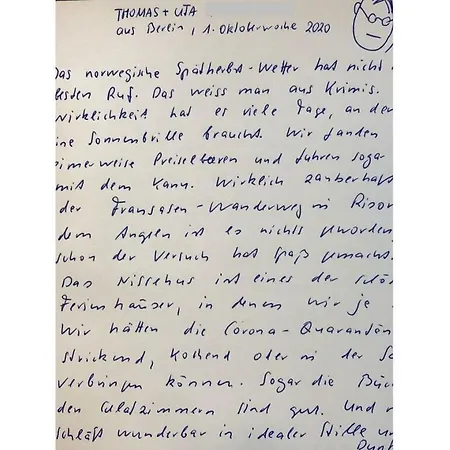 THOMAS + UTA
aus Berlin, 1. Oktoberwoche 2020
Das norwegische Spätherbst-Wetter hat nicht
besten Ruf. Das weiss man aus Krimis.
Wirklichkeit hat es viele Tage, an den
ine Sonnenbrille braucht. Wir fanden
eimerweise Preiselbeeren und fuhren sogar
mit dem Kanu. Wirklich zauberhaft
der Fransosen-Wanderweg in Risør
dem Angeln ist es nichts geworden,
schon der Versuch hat Spaß gemacht.
Das Nissehus ist eines der schö
Ferienhäuser, in denen wir je
Wir hätten die Corona-Quarantän
strickend, kochend oder in der Sa
verbringen können. Sogar die Büc
den Schlafzimmern sind gut. Und
schläft wunderbar in idealer Stille un
Dunk